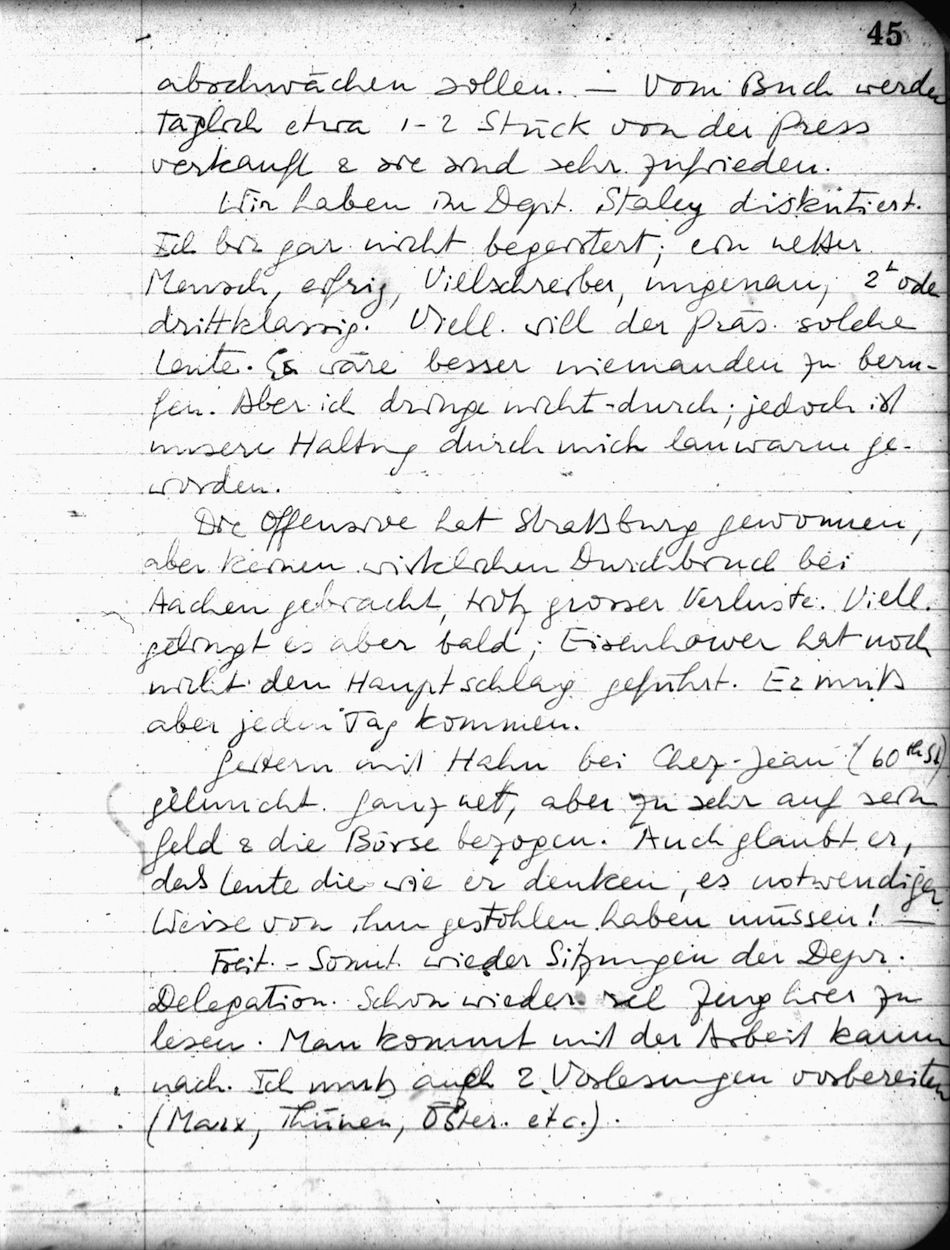 45
abschwächen sollen. — Vom Buch werden
täglich etwa 1-2 Stück von der Press
verkauft & sie sind sehr zufrieden.
Wir haben im Dept. Staley diskutiert.
Ich bin gar nicht begeistert; ein netter
Mensch, eifrig, Vielschreiber, ungenau, 2t oder
drittklassig. Viell. will der Präs. solche
Leute. Es wäre besser niemanden zu beru-
fen. Aber ich dringe nicht durch; jedoch ist
unsere Haltung durch mich lauwarm ge-
worden.
Die Offensive hat Straßburg gewonnen,
aber keinen wirklichen Durchbruch bei
Aachen gebracht, trotz grosser Verluste. Viell.
gelingt es aber bald; Eisenhower hat noch
nicht den Hauptschlag geführt. Er muß
aber jeden Tag kommen.
Gestern mit Hahn bei Chez-Jean (60th St)
geluncht. Ganz nett, aber zu sehr auf sein
Geld & die Börse bezogen. Auch glaubt er,
daß Leute die wie er denken, es notwendiger
Weise von ihm gestohlen haben müssen! —
Freit. - Sonnt. wieder Sitzungen der
Delegation. Schon wieder viel Zeug hier zu
lesen. Man kommt mit der Arbeit kaum
nach. Ich muß auch 2 Vorlesungen vorbereiten
(Marx, Thünen, Öster. etc.).